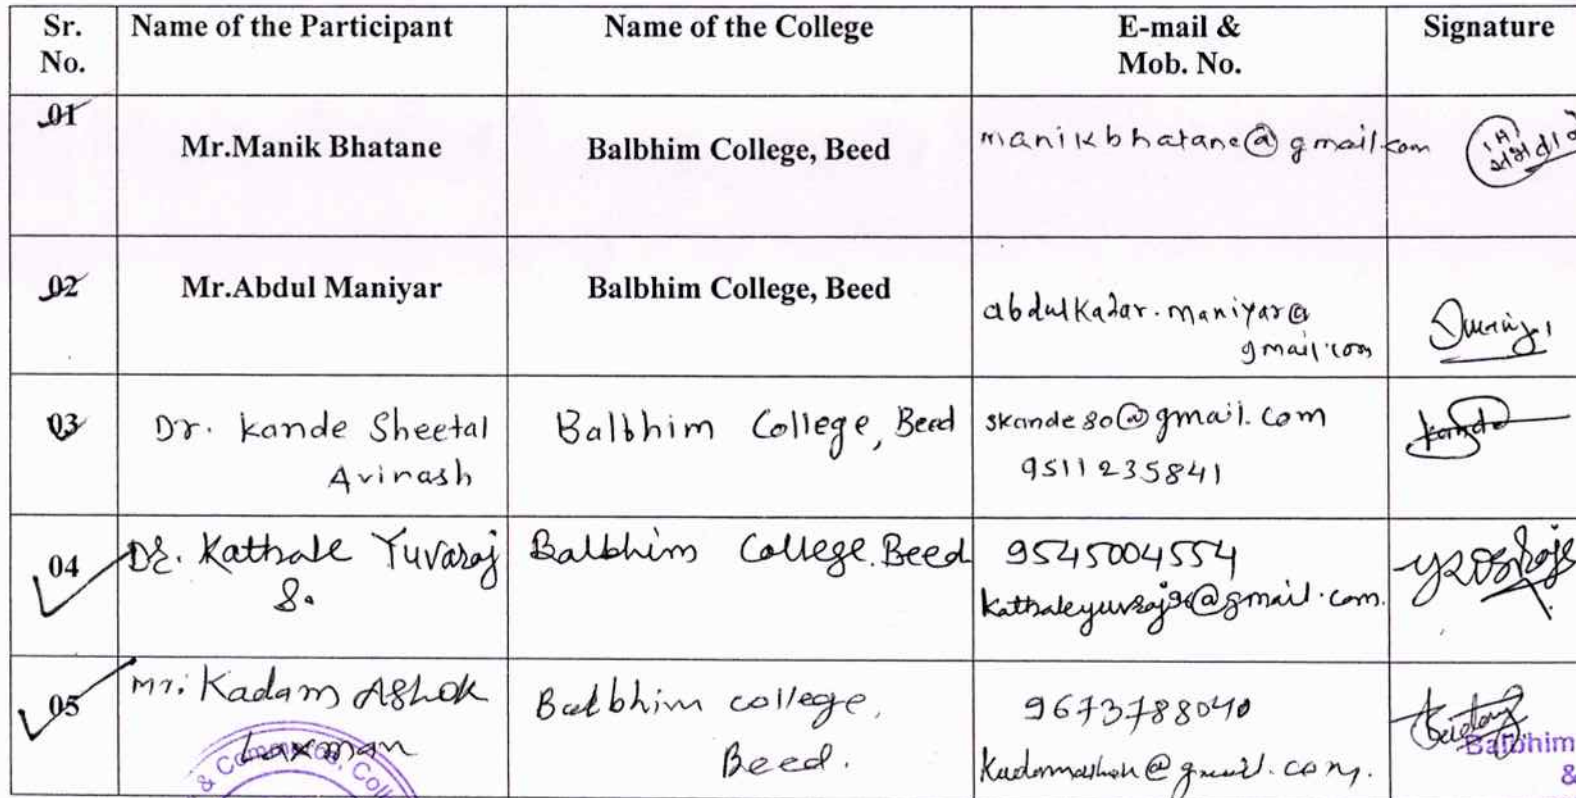 Sr. No. Name of the Participant Name of the College E-mail & Mob. No. Signature
01 Mr.Manik Bhatane Balbhim College, Beed manikbhatane@gmail.com
02 Mr.Abdul Maniyar Balbhim College, Beed abdulkadar.maniyar@
gmail.com
03 Dr. Kande Sheetal Balbhim College, Beed skande80@gmail.com
Avinash 9511235841
04 Dr. Kathale Yuvaraj Balbhim College. Beed 9545004554
S. @gmail.com.
05 Mr. Kadam Ashok Balbhim college, 9673788040
Laxman Beed. @gmail.com.
& Commerce, Coll
Balbhim
&